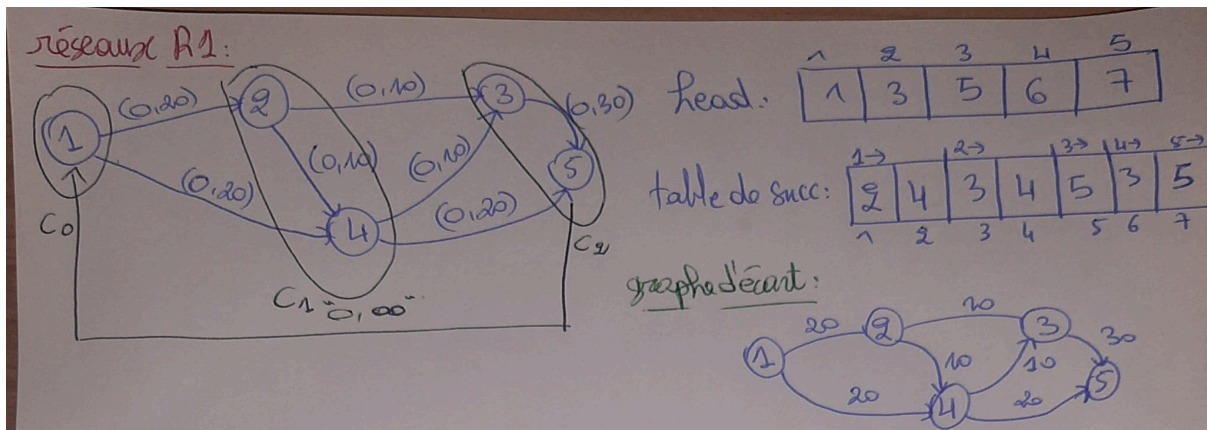 réseaux R1:
1
(0,20)
2
(0,10)
3
(0,30)
5
(0,10)
(0,10)
(0,20)
4
(0,20)
C0
C1
C2
"0,∞"
head:
1 2 3 4 5
1 3 5 6 7
table de succ:
1→ 2→ 3→ 4→ 5→
2 4 3 4 5 3 5
1 2 3 4 5 6 7
graphe d'écart:
1
20
2
10
3
30
5
10
10
20
4
20